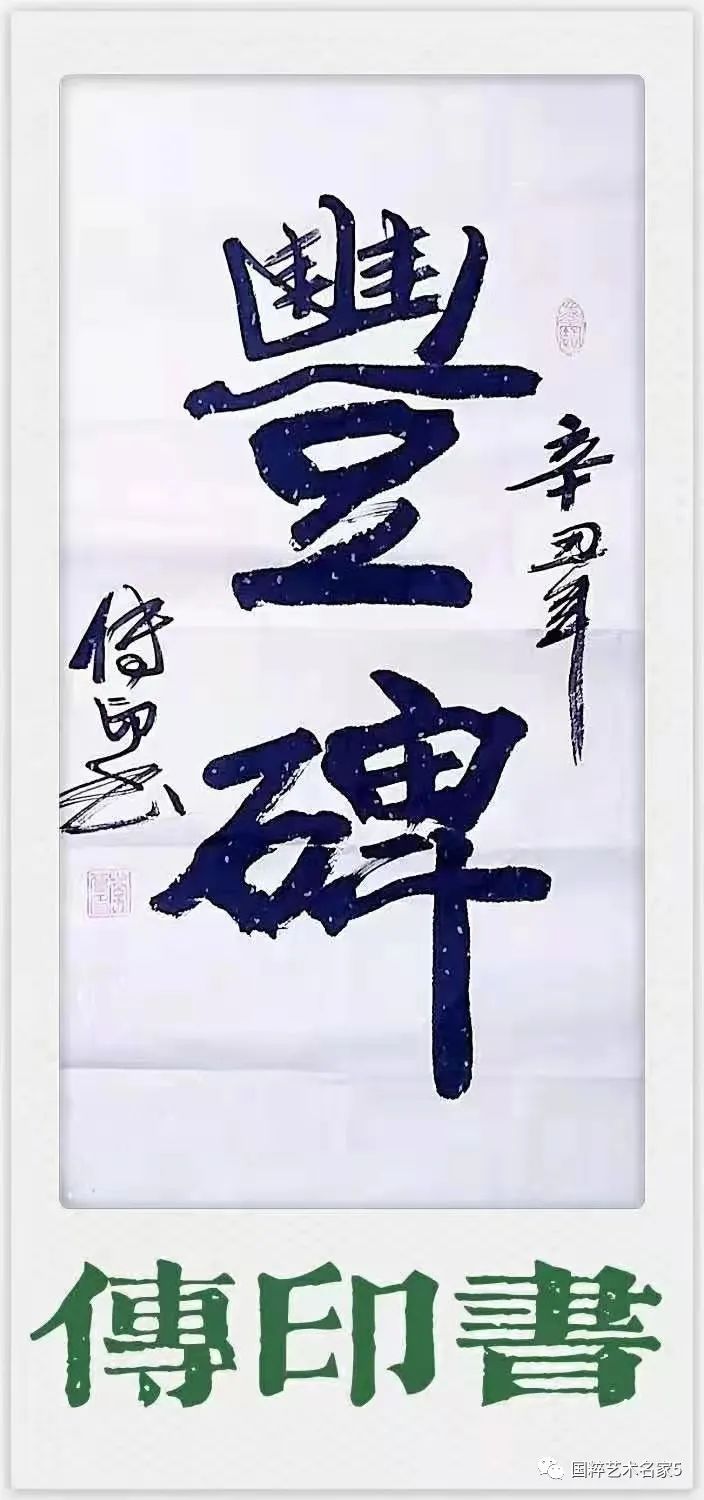 豐碑
辛丑年
傳印書
傳印書
国粹艺术名家5